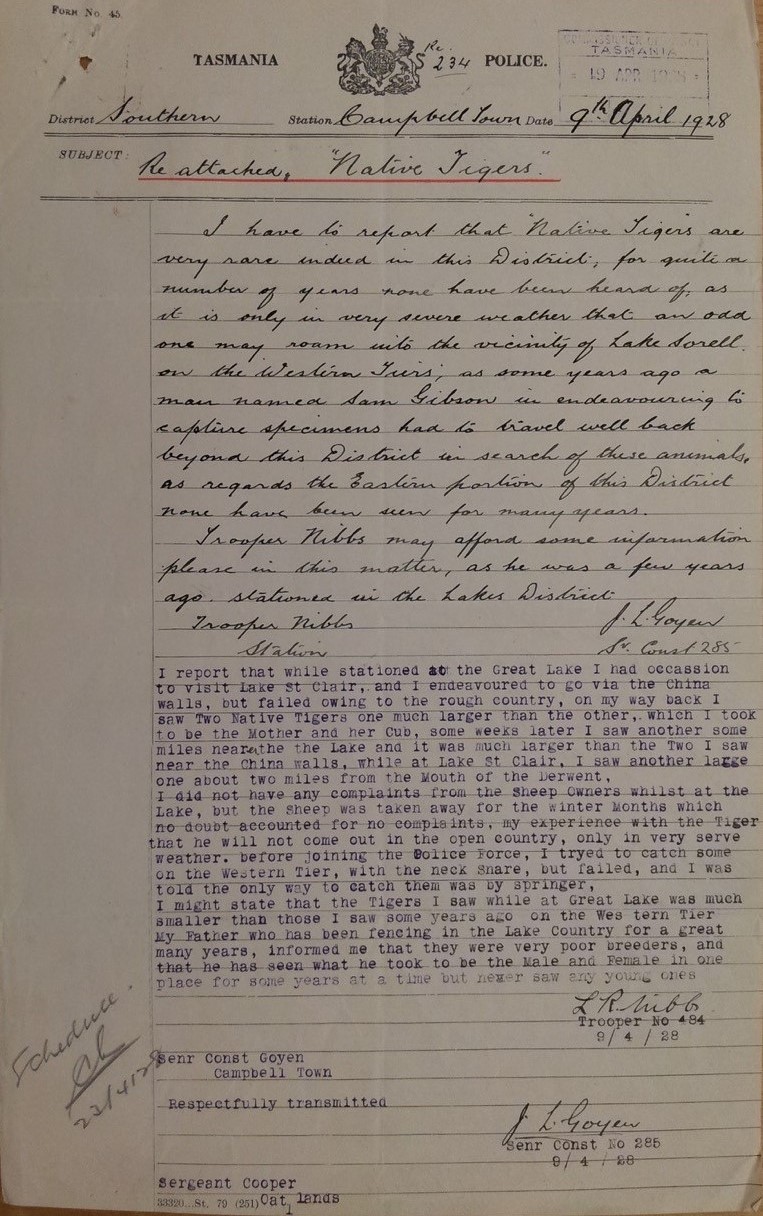 FORM No 45.
TASMANIA Re. 234 POLICE.
COMMISSIONER OF POLICE
TASMANIA
19 APR 1928
District Southern Station Campbell Town Date 9th April 1928
SUBJECT: Re attached, "Native Tigers".
I have to report that "Native Tigers are
very rare indeed in this District, for quite a
number of years none have been heard of, as
it is only in very severe weather that an odd
one may roam into the vicinity of Lake Sorell
on the Western Tiers, as some years ago a
man named Sam Gibson in endeavouring to
capture specimens had to travel well back
beyond this District in search of these animals,
as regards the Eastern portion of this District
none have been seen for many years.
Trooper Nibbs may afford some information
please in this matter, as he was a few years
ago. stationed in the Lakes District
Trooper Nibbs J. L. Goyen
Station Sr. Const 285
I report that while stationed at the Great Lake I had occassion
to visit Lake St Clair, and I endeavoured to go via the China
walls, but failed owing to the rough country, on my way back I
saw Two Native Tigers one much larger than the other, which I took
to be the Mother and her Cub, some weeks later I saw another some
miles near the the Lake and it was much larger than the Two I saw
near the China walls, while at Lake St Clair, I saw another large
one about two miles from the Mouth of the Derwent,
I did not have any complaints from the Sheep Owners whilst at the
Lake, but the Sheep was taken away for the winter Months which
no doubt accounted for no complaints, my experience with the Tiger
that he will not come out in the open country, only in very serve
weather. before joining the Police Force, I tryed to catch some
on the Western Tier, with the neck Snare, but failed, and I was
told the only way to catch them was by springer,
I might state that the Tigers I saw while at Great Lake was much
smaller than those I saw some years ago on the Wes tern Tier
My Father who has been fencing in the Lake Country for a great
many years, informed me that they were very poor breeders, and
that he has seen what he took to be the Male and Female in one
place for some years at a time but never saw any young ones
L R Nibbs
Trooper No 484
9/4/28
Schedule.
23/4/28
Senr Const Goyen
Campbell Town
Respectfully transmitted
J. L. Goyen
Senr Const No 285
9/4/28
Sergeant Cooper
33320...St. 79 (251) Oat lands